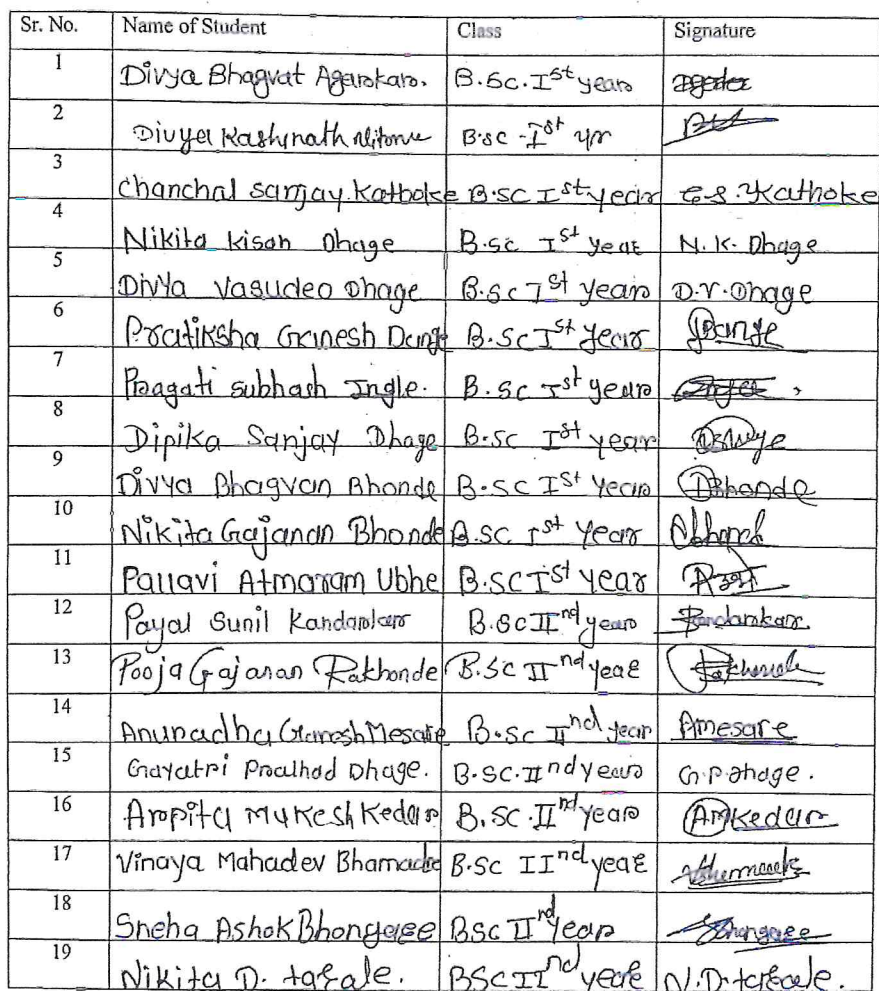 Sr. No. Name of Student Class Signature
1 Divya Bhagvat Agarkar. B.Sc. Ist year
2 Divya Kashinath B.sc - Ist yr
3 Chanchal Sanjay Kathoke B.SC Ist year C.S. Kathoke
4 Nikita Kisan Dhage B.sc Ist year N.K. Dhage
5 Divya Vasudeo Dhage B.sc Ist year D.V. Dhage
6 Pratiksha Ganesh Dange B.SC Ist year Dange
7 Pragati Subhash Ingle. B.SC Ist year
8 Dipika Sanjay Dhage B.sc Ist year
9 Divya Bhagvan Bhonde B.SC Ist Year DBhonde
10 Nikita Gajanan Bhonde B.SC Ist Year
11 Pallavi Atmaram Ubhe B.SC Ist year
12 Payal Sunil Kandarkar B.Sc IInd year
13 Pooja Gajanan Rakhonde B.SC IInd year
14 Anuradha Ganesh Mesare B.SC IInd year Amesare
15 Gayatri Pralhad Dhage. B.SC. IInd year G.P. Dhage.
16 Arpita Mukesh Kedar B.SC. IInd year AMKedar
17 Vinaya Mahadev Bhamadre B.SC IInd year
18 Sneha Ashok Bhongare BSC IInd Year Bhongare
19 Nikita D. tarale. BSC IInd year N.D. tarale.